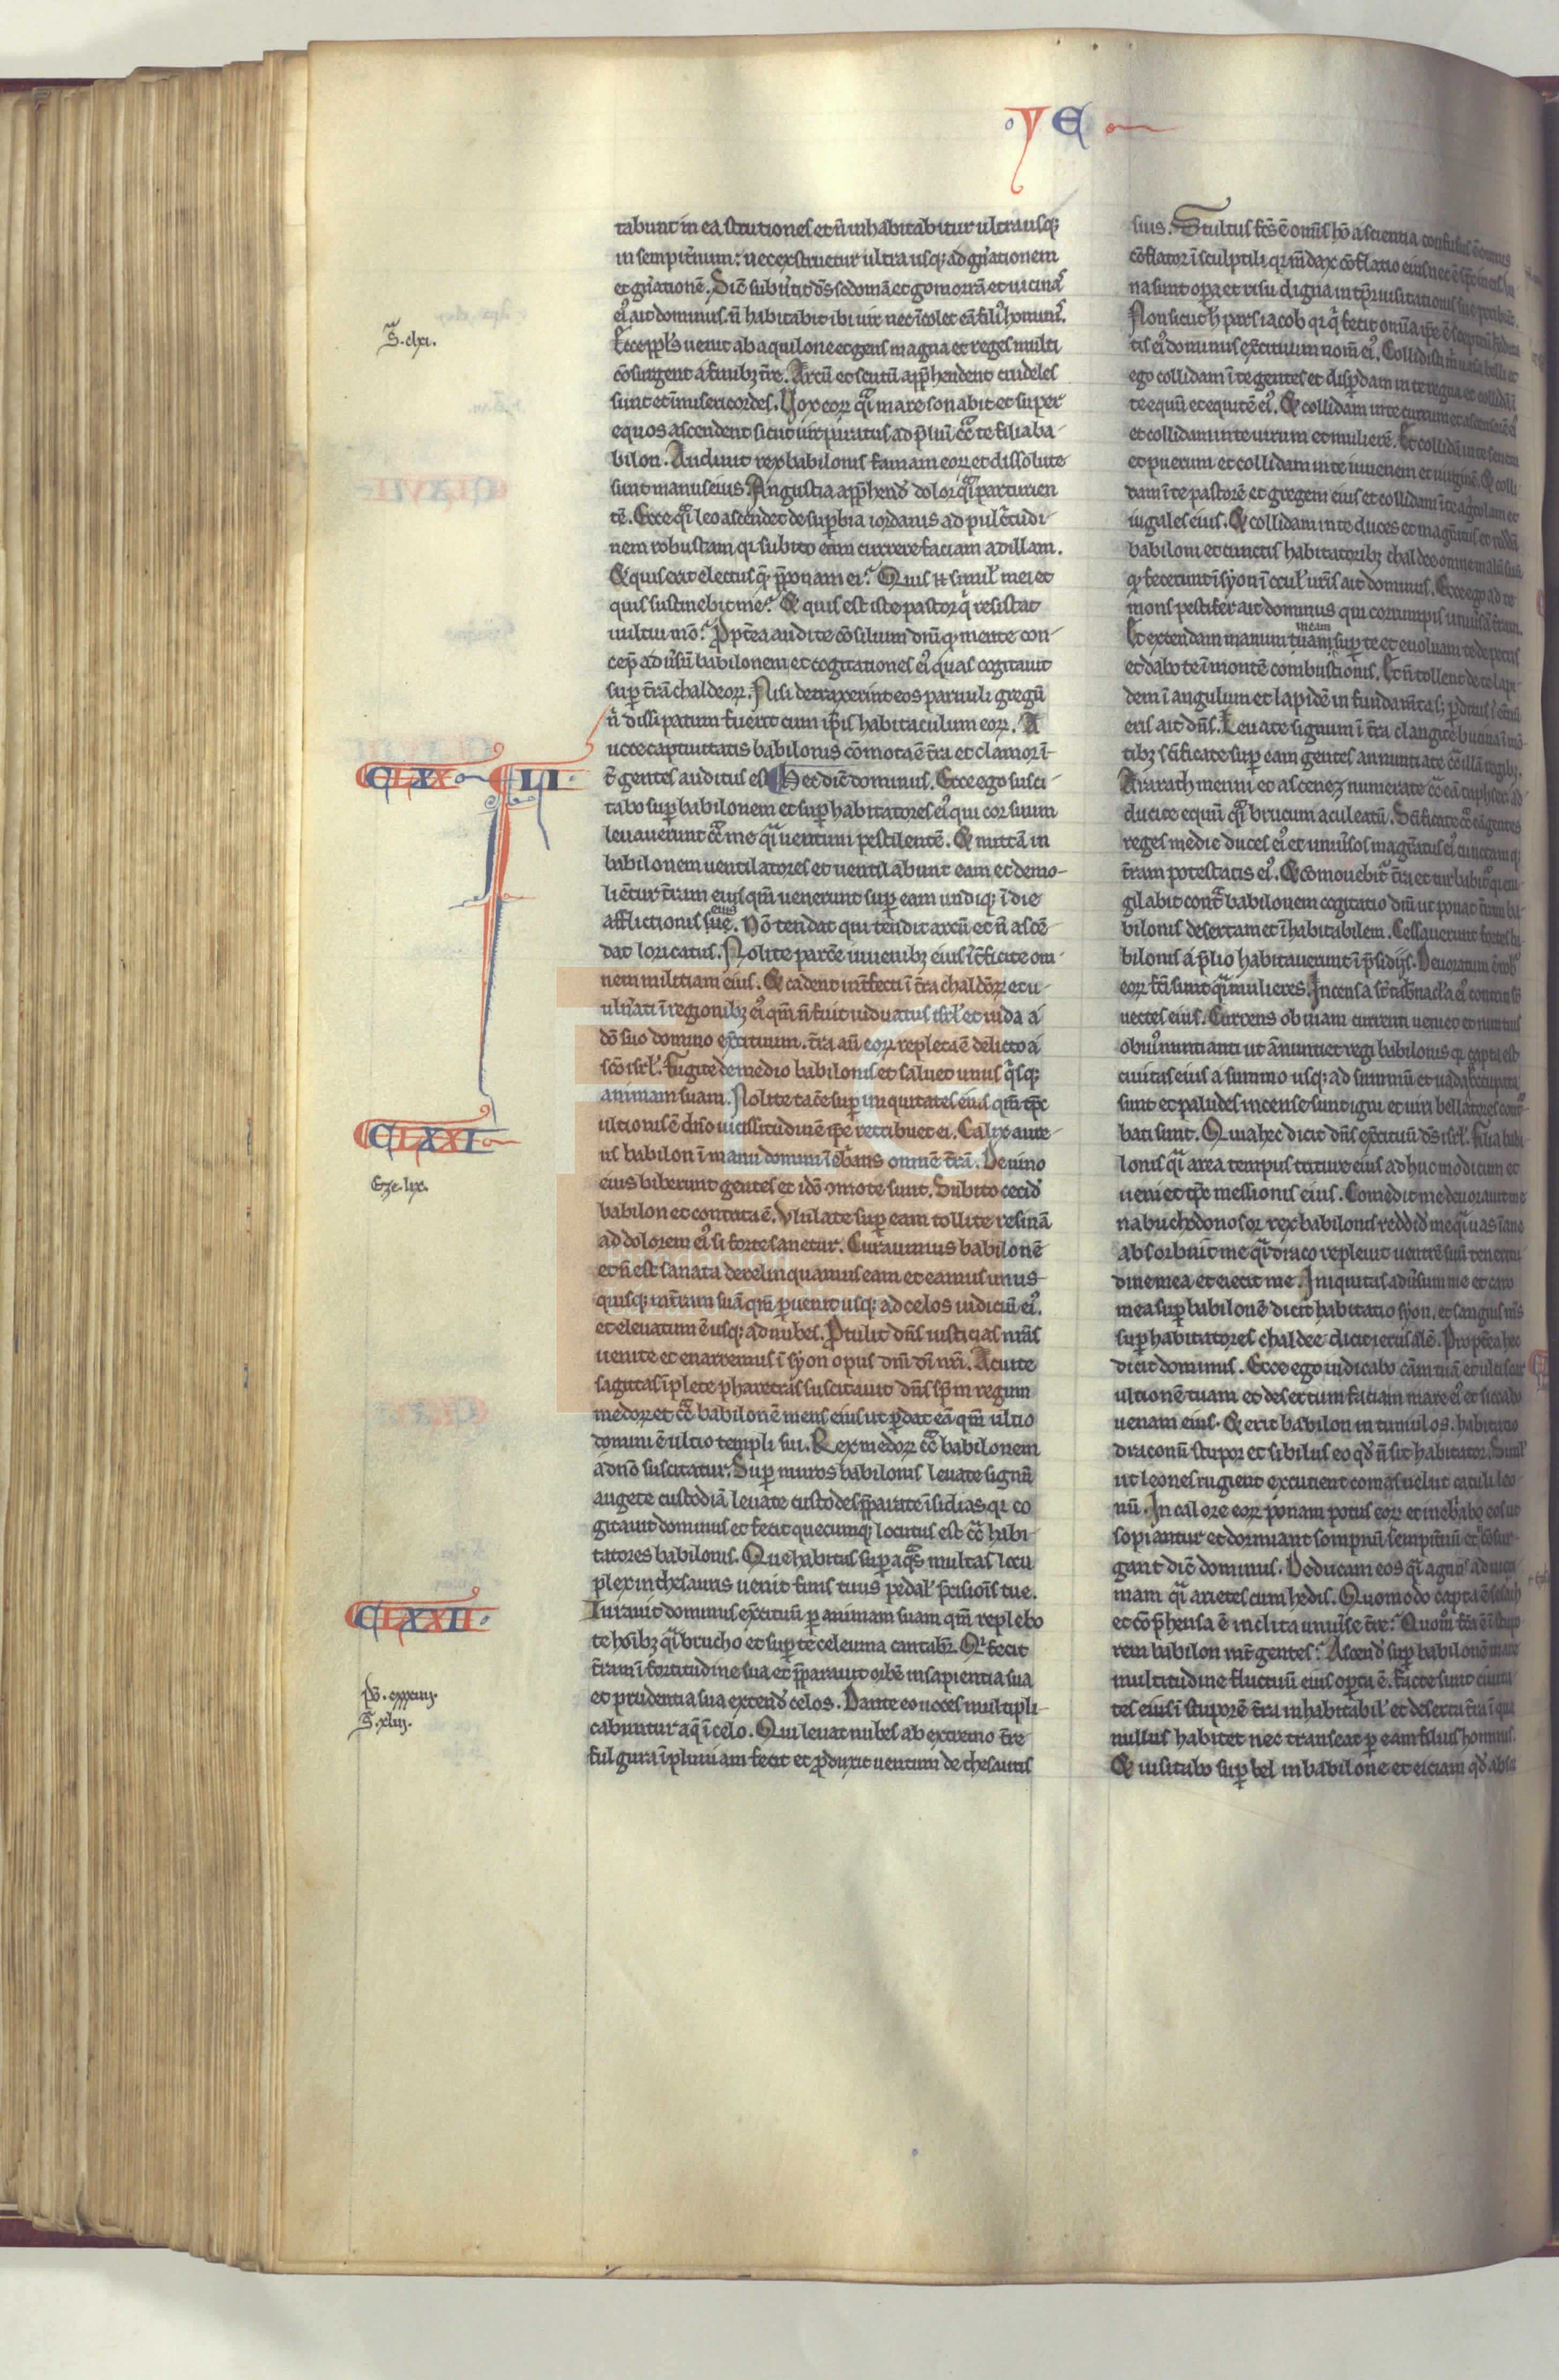 YE
tabunt in ea strutiones et n̄ inhabitabitur ultra usq;
in sempit̄num: nec exstruetur ultra usq; ad gn̄ationem
et gn̄ationē. Sic̄ subūtit dn̄s sodomā et gomorrā et uicinas
ei᾽ ait dominus. n̄ habitabit ibi uir nec īcolet eā fili᾽ hominis.
Ecce ppl̄s uenit ab aquilone et gens magna et reges multi
cōsurgent a finibz t̄re. Arcū et scutū app̄hendent crudeles
sunt et īmisericordes. Vox eoꝝ q̄i mare sonabit et super
equos ascendent sicut uir paratus ad p̄liū cō̄ te filia ba-
bilon. Audiuit rex babilonis famam eoꝝ et dissolute
sunt manus eius. Angustia app̄hend᾽ dolor q̄i parturien
tē. Ecce q̄i leo ascendet de sup̄bia iordanis ad pulc̄tudi-
nem robustam qꝛ subito eum currere faciam ad illam.
Et quis erit electus q̄ p̄ponam ei? Quis .n. simil᾽ mei et
quis sustinebit me? Et quis est iste pastor q̄ resistat
uultui mō? Ꝓpt̄ea audite cōsilium dn̄i q̄ mente con-
cep̄ adūsū babilonem et cogitationes ei᾽ quas cogitauit
sup̄ t̄rā chaldeoꝝ. Nisi detraxerint eos paruuli gregū
n̄ dissipatum fuerit cum ip̄is habitaculum eoꝝ. A
uoce captiuitatis babilonis cōmota ē t̄ra et clamor ī-
t̄ gentes auditus est. Hec dic̄ dominus. Ecce ego susci-
tabo sup̄ babilonem et sup̄ habitatores ei᾽ qui cor suum
leuauerunt cō̄ me q̄i uentum pestilentē. Et mittā in
babilonem uentilatores et uentilabunt eam et demo-
liētur t̄ram eius qm̄ uenerunt sup̄ eam undiq; ī die
afflictionis sue eius. Nō tendat qui tendit arcū et n̄ ascē
dat loricatus. Nolite parc̄e iuuenibz eius īt̄ficite om
nem militiam eius. Et cadent int̄fecti ī t̄ra chaldeoꝝ et u
uln̄ati ī regionibz ei᾽ qm̄ n̄ fuit uiduatus isrl᾽ et iuda a
dō suo domino ex̄cituum. t̄ra aū eoꝝ repleta ē delicto a
sc̄o isrl᾽. Fugite de medio babilonis et saluet unus q̄sq;
animam suam. Nolite tac̄e sup̄ iniquitates eius qm̄ tp̄c
ultionis ē dn̄o uicissitudinē ip̄e retribuet ei. Calix aure
us babilon ī manu domini īeb̄ans omnē t̄rā. De uino
eius biberunt gentes et idō cōmote sunt. Subito cecid᾽
babilon et contrita ē. Vlulate sup̄ eam tollite resinā
ad dolorem ei᾽ si forte sanetur. Curauimus babilonē
et n̄ est sanata derelinquamus eam et eamus unus
quisq; in t̄ram suā qm̄ p̄uenit usq; ad celos iudiciū ei᾽.
et eleuatum ē usq; ad nubes. Ꝓtulit dn̄s iusticias nr̄as
uenite et enarremus ī syon opus dn̄i dī nr̄i. Acuite
sagittas īplete pharetras suscitauit dn̄s sp̄m regum
medoꝝ et cō̄ babilonē mens eius ut p̄dat eā qm̄ ultio
domini ē ultio templi sui. Rex medoꝝ cō̄ babilonem
a dn̄o suscitatur. Sup̄ muros babilonis leuate signū
augete custodiā leuate custodes p̄parate īsidias qꝛ co
gitauit dominus et fecit quecumq; locutus est cō̄ habi
tatores babilonis. Que habitas sup̄ aq̄s multas locu
plex in thesauris uenit finis tuus pedal᾽ p̄cisiōis tue.
Iurauit dominus ex̄cituū p̄ animam suam qm̄ replebo
te hōibz q̄i brucho et sup̄ te celeuma cantabr̄. Qͥ fecit
t̄ram ī fortitudine sua et p̄parauit orbē in sapientia sua
et prudentia sua extend᾽ celos. Dante eo uoces multipli-
cabuntur aq̄ ī celo. Qui leuat nubes ab extremo t̄re
fulgura ī pluuiam fecit et p̄duxit uentum de thesauris
S. clxi.
CLXX
LI
CLXXI
Eze. lix.
CLXXII
pō. cxxxiiij.
S. xliij.
suis. Stultus fc̄s ē omnis hō a scientia confusus ē omnis
cōflator ī sculptili qꝛ m̄dax cōflatio eius nec ē sp̄c in eis
na sunt opera et risu digna in tp̄r uisitationis sue peribūt.
Non sicut h̄ pars iacob qꝛ q̄ fecit om̄ia ip̄e ē
tis ei᾽ dominus ex̄cituum nom̄ ei᾽. Collidis tu m̄ uasa belli et
ego collidam ī te gentes et disp̄dam in te regna et collidā ī
te equū et equitē ei᾽. Et collidam in te currum et ascensorē ei᾽
et collidam in te uirum et mulierē. Et collidā in te senem
et puerum et collidam in te iuuenem et uirginē. Et colli
dam ī te pastorē et gregem eius et collidam ī te agricolam et
iugales eius. Et collidam in te duces et magr̄atus et reddā
babiloni et cunctis habitatoribz chaldee omne malū suū
q̄ fecerunt ī syon ī ocul᾽ ur̄is ait dominus. Ecce ego ad te
mons pestifer ait dominus qui corrumpis uniūsā t̄ram.
Et extendam manum tuam meam sup̄ te et euoluam te de petris
et dabo te ī montē combustionis. Et n̄ tollent de te lapi-
dem ī angulum et lapidē in fundam̄ta s; p̄ditus ī et̄nū
eris ait dn̄s. Leuate signum ī t̄ra clangite buccina ī gē
tibz sc̄ificate sup̄ eam gentes annuntiate cō̄ illā regibz.
Ararath menni et ascenez numerate cō̄ eā taphsar ad
ducite equū q̄i brucum aculeatū. Sc̄ificate cō̄ eā gentes
reges medie duces ei᾽ et uniūsos magr̄atus ei᾽ cunctamq;
t̄ram potestatis ei᾽. Et cōmouebit᾽ t̄ra et turbabit᾽ q̄ eui
gilabit cont̄ babilonem cogitatio dn̄i ut ponat t̄ram ba-
bilonis desertam et īhabitabilem. Cessauerunt fortes ba
bilonis a p̄lio habitauerunt ī p̄sidijs. Deuoratum ē rob᾽
eoꝝ fc̄i sunt q̄i mulieres. Incensa sūt tab̄nacl᾽a ei᾽ contriti sūt
uectes eius. Currens obuiam currenti ueniet et nuntius
obui᾽ nuntianti ut ānuntiet regi babilonis qꝛ capta est
ciuitas eius a summo usq; ad summū et uada p̄occupata
sunt et paludes incense sunt igni et uiri bellatores contur
bati sunt. Quia hec dicit dn̄s ex̄cituū ds̄ isrl᾽. Filia babi
lonis q̄i area tempus triture eius adhuc modicum et
ueniet tp̄c messionis eius. Comedit me deuorauit me
nabuchodonosor rex babilonis reddid᾽ me q̄i uas īane
absorbuit me q̄i draco repleuit uentrē suū teneritu
dine mea et eiecit me. Iniquitas adūsum me et caro
mea sup̄ babilonē dicit habitatio syon. et sanguis m̄s
sup̄ habitatores chaldee: dicit ierusalē. Propt̄ea hec
dicit dominus. Ecce ego iudicabo cām tuā et ulciscar
ultionē tuam et desertum faciam mare ei᾽ et siccabo
uenam eius. Et erit babilon in tumulos. habitatio
draconū stupor et sibilus eo qd᾽ n̄ sit habitator. Simł
ut leones rugient excutient comas uelut catuli leo
nū. In calore eoꝝ ponam potus eoꝝ et inebriabo eos ut
sopiantur et dormiant sompnū sempit̄nū et n̄ cōsur-
gant dic̄ dominus. Deducam eos q̄i agnos ad uicti
mam q̄i arietes cum hedis. Quomodo capta ē sesach
et cōp̄hensa ē inclita uniūse t̄re? Quom̄ fc̄a ē ī stupo
rem babilon int̄ gentes? Ascend᾽ sup̄ babilonē mare
multitudine fluctuū eius op̄ta ē. Facte sunt ciuita
tes eius ī stuporē t̄ra inhabitabil᾽ et deserta t̄ra ī qua
nullus habitet nec transeat p̄ eam filius hominis.
Et uisitabo sup̄ bel in babilone et eiciam qd᾽ absor